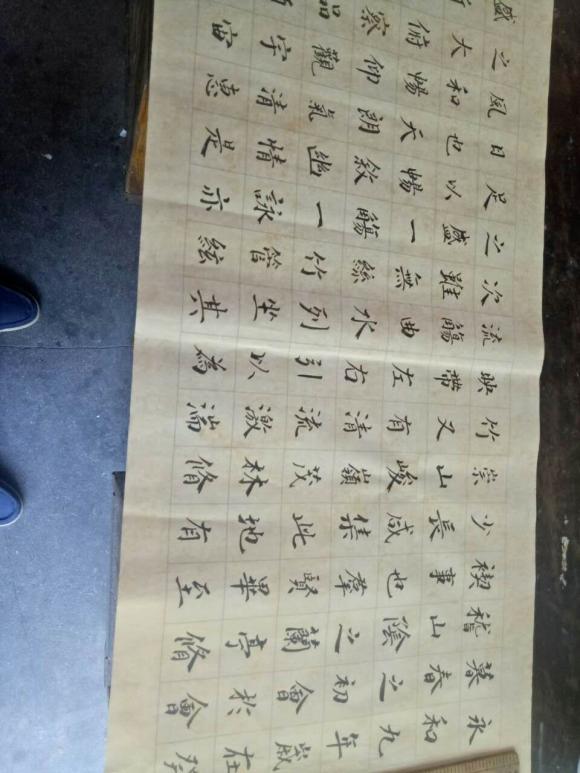 永和九年歲在
暮春之初會於會
稽山陰之蘭亭脩
禊事也羣賢畢至
少長咸集此地有
宗山峻嶺茂林脩
竹又有清流激湍
映帶左右引以為
流觴曲水列坐其
次雖無絲竹管絃
之盛一觴一詠亦
足以暢敘幽情是
日也天朗氣清惠
風和暢仰觀宇宙
之大俯察品
盛